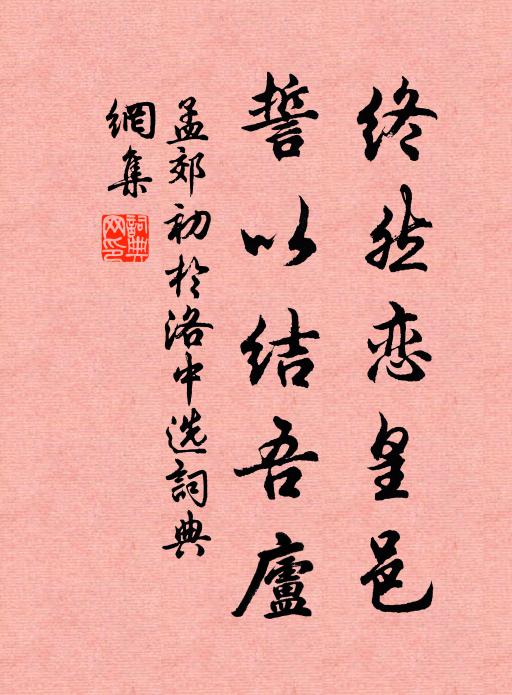 终然恋皇邑
誓以结吾廬
孟郊初於洛中选詞典
網集
詞典网印